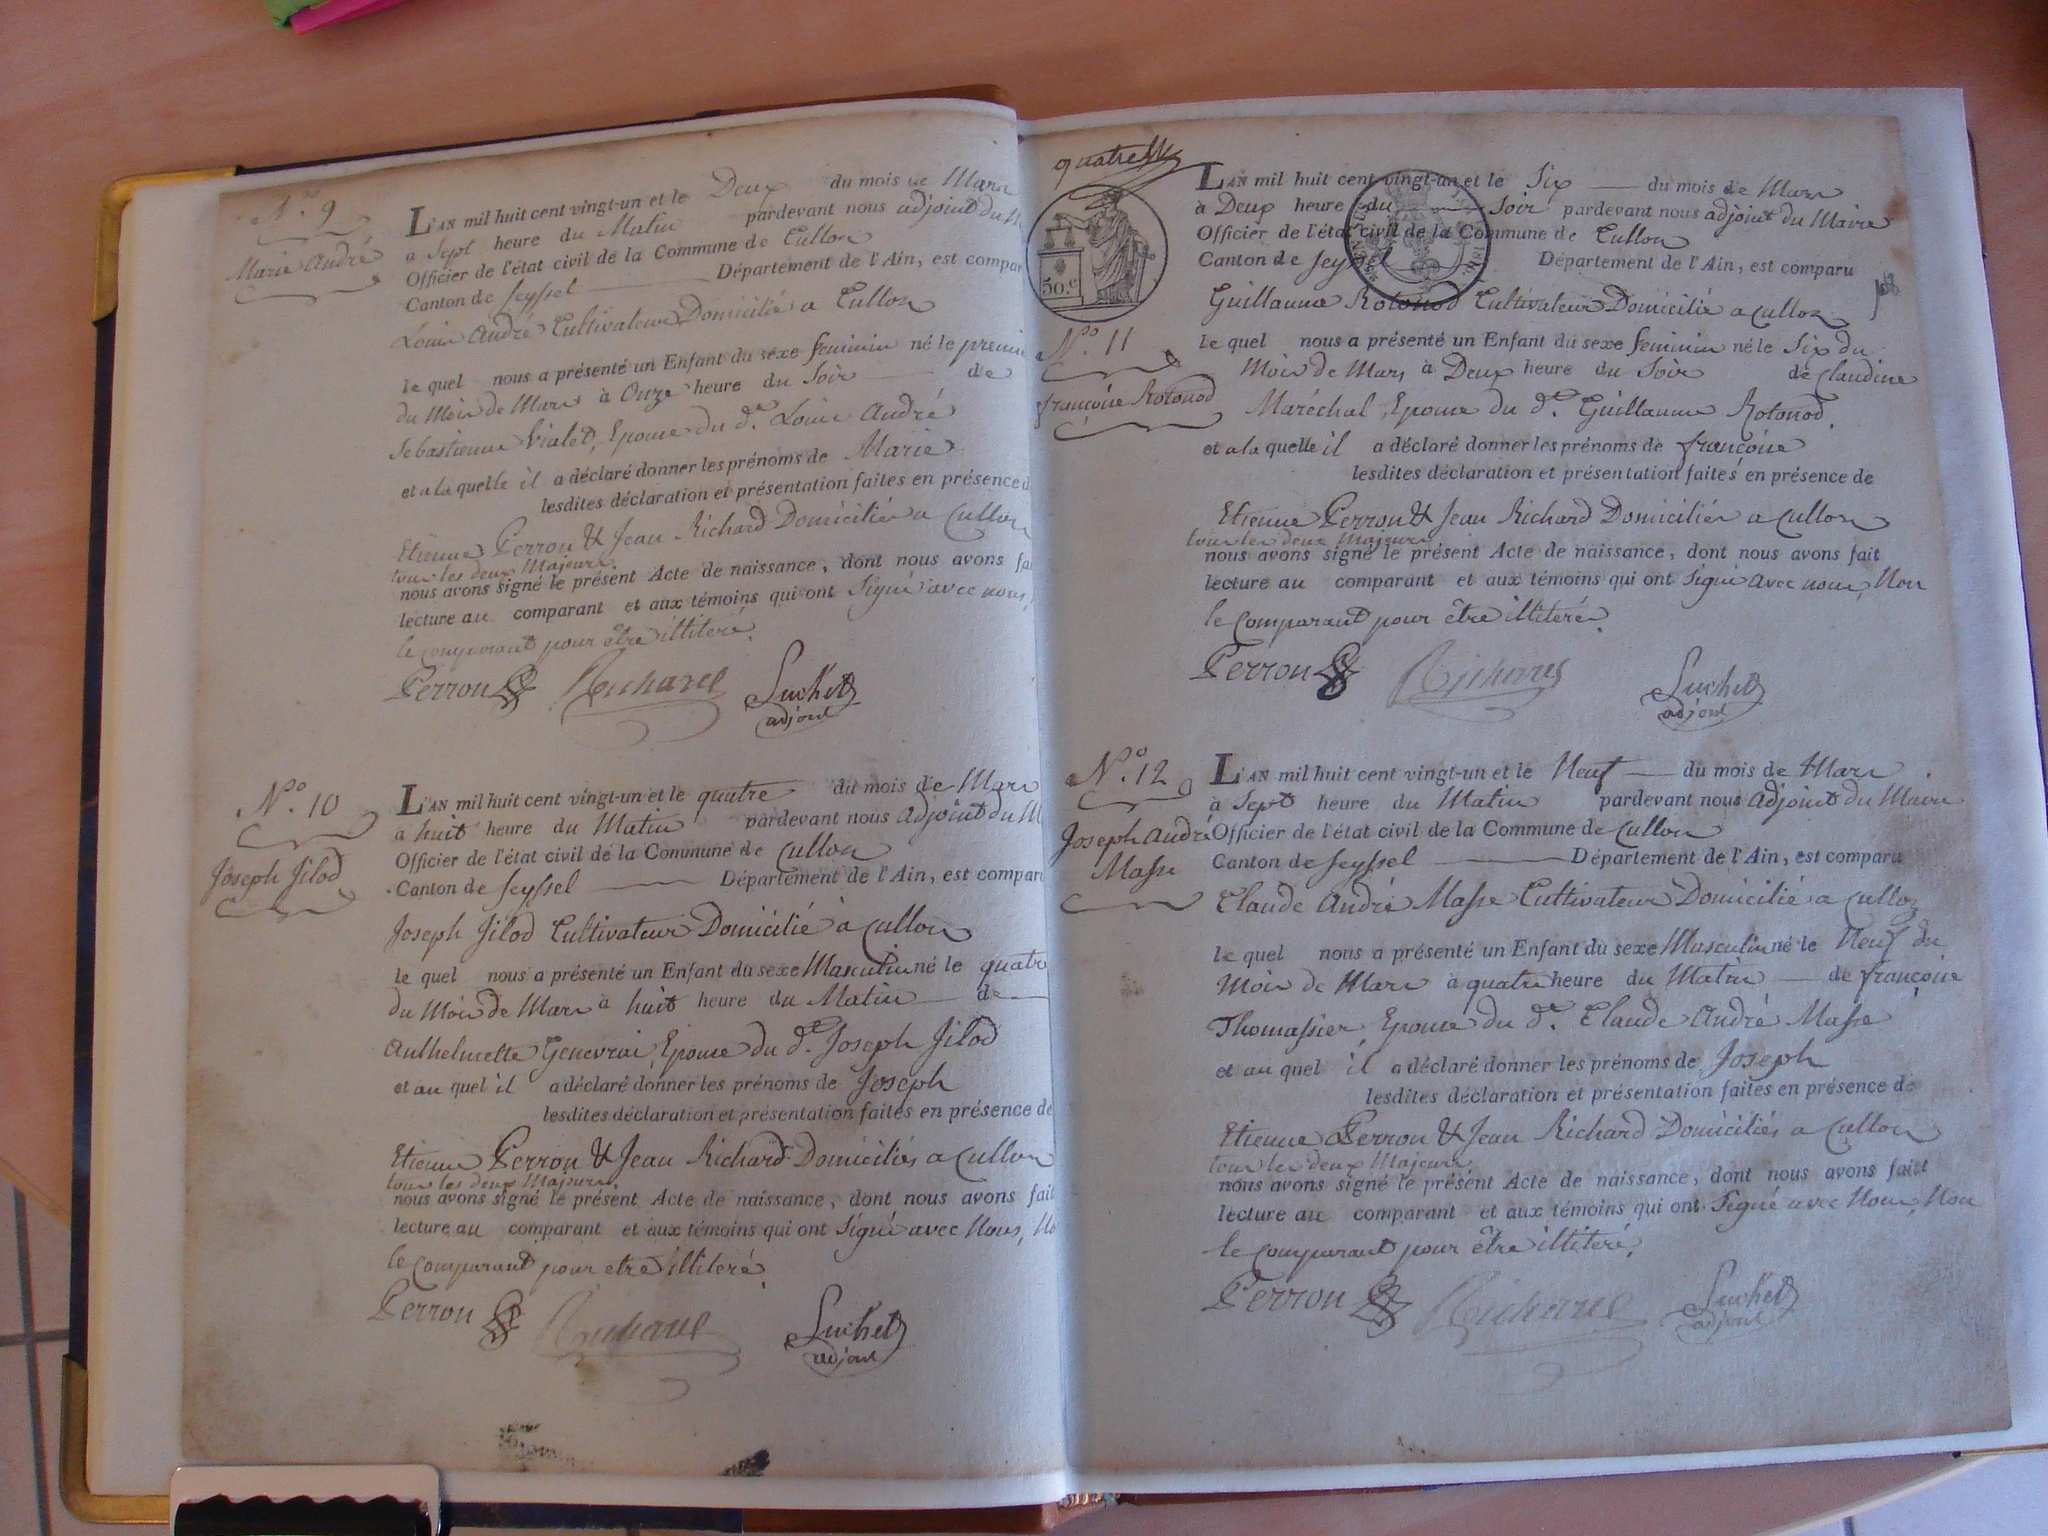 N.º 9
Marie André
L'AN mil huit cent vingt-un et le Deux du mois de Mars
a Sept heure du Matin pardevant nous adjoint du
Officier de l'état civil de la Commune de Cullon
Canton de Seyssel Département de l'Ain, est compar
Louis André Cultivateur Domicilié a Cullon
le quel nous a présenté un Enfant du sexe feminin né le premie
du Mois de Mars à Onze heure du Soir de
Sebastienne Vialet, Epouse du d.t Louis André
et a la quelle il a déclaré donner les prénoms de Marie
lesdites déclaration et présentation faites en présence d
Etienne Perron & Jean Richard Domiciliés a Cullon
tous les deux Majeurs
nous avons signé le présent Acte de naissance, dont nous avons fai
lecture au comparant et aux témoins qui ont Signé avec nous,
le comparant pour être illiteré.
Perron Richard Suchet
adjoint
N.º 10
Joseph Jilod
L'AN mil huit cent vingt-un et le quatre du mois de Mars
a huit heure du Matin pardevant nous adjoint du M
Officier de l'état civil de la Commune de Cullon
Canton de Seyssel Département de l'Ain, est compar
Joseph Jilod Cultivateur Domicilié à Cullon
le quel nous a présenté un Enfant du sexe Masculin né le quatre
du Mois de Mars à huit heure du Matin de
Anthelmette Genevrai, Epouse du d.t Joseph Jilod
et au quel il a déclaré donner les prénoms de Joseph
lesdites déclaration et présentation faites en présence de
Etienne Perron & Jean Richard Domiciliés a Cullon
tous les deux Majeurs
nous avons signé le présent Acte de naissance, dont nous avons fait
lecture au comparant et aux témoins qui ont Signé avec Nous, No
le comparant pour etre illiteré.
Perron Richard Suchet
adjoint
quatre
50.c
N.º 11
françoise Rotonod
L'AN mil huit cent vingt-un et le Six du mois de Mars
à Deux heure du Soir pardevant nous adjoint du Maire
Officier de l'état civil de la Commune de Cullon
Canton de Seyssel Département de l'Ain, est comparu
Guillaume Rotonod Cultivateur Domicilié a Cullon
le quel nous a présenté un Enfant du sexe feminin né le Six du
Mois de Mars à Deux heure du Soir de Claudine
Maréchal, Epouse du d.t Guillaume Rotonod.
et a la quelle il a déclaré donner les prénoms de françoise
lesdites déclaration et présentation faites en présence de
Etienne Perron & Jean Richard Domiciliés a Cullon
tous les deux Majeurs
nous avons signé le présent Acte de naissance, dont nous avons fait
lecture au comparant et aux témoins qui ont Signé avec nous, Non
le Comparant pour être illiteré.
Perron Richard Suchet
adjoint
N.º 12
Joseph André
Masse
L'AN mil huit cent vingt-un et le Neuf du mois de Mars
à Sept heure du Matin pardevant nous Adjoint du Maire
Officier de l'état civil de la Commune de Cullon
Canton de Seyssel Département de l'Ain, est comparu
Claude André Masse Cultivateur Domicilié a Cullon
le quel nous a présenté un Enfant du sexe Masculin né le Neuf du
Mois de Mars à quatre heure du Matin de françoise
Thomassier, Epouse du d.t Claude André Masse
et au quel il a déclaré donner les prénoms de Joseph
lesdites déclaration et présentation faites en présence de
Etienne Perron & Jean Richard Domiciliés a Cullon
tous les deux Majeurs
nous avons signé le présent Acte de naissance, dont nous avons fait
lecture au comparant et aux témoins qui ont Signé avec Nous, Non
le comparant pour être illiteré.
Perron Richard Suchet
adjoint